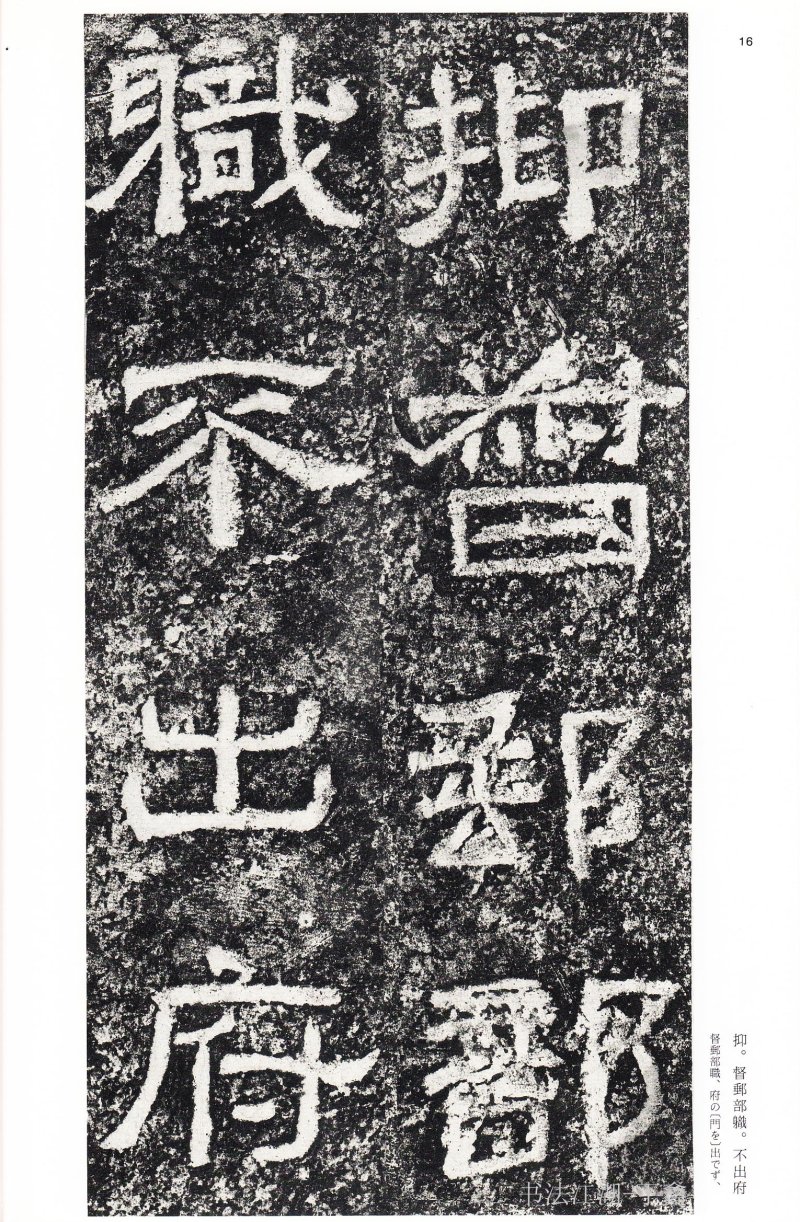 16
抑督郵部
職不出府
抑。督郵部軄。不出府
督郵部職、府の〔門を〕出でず、